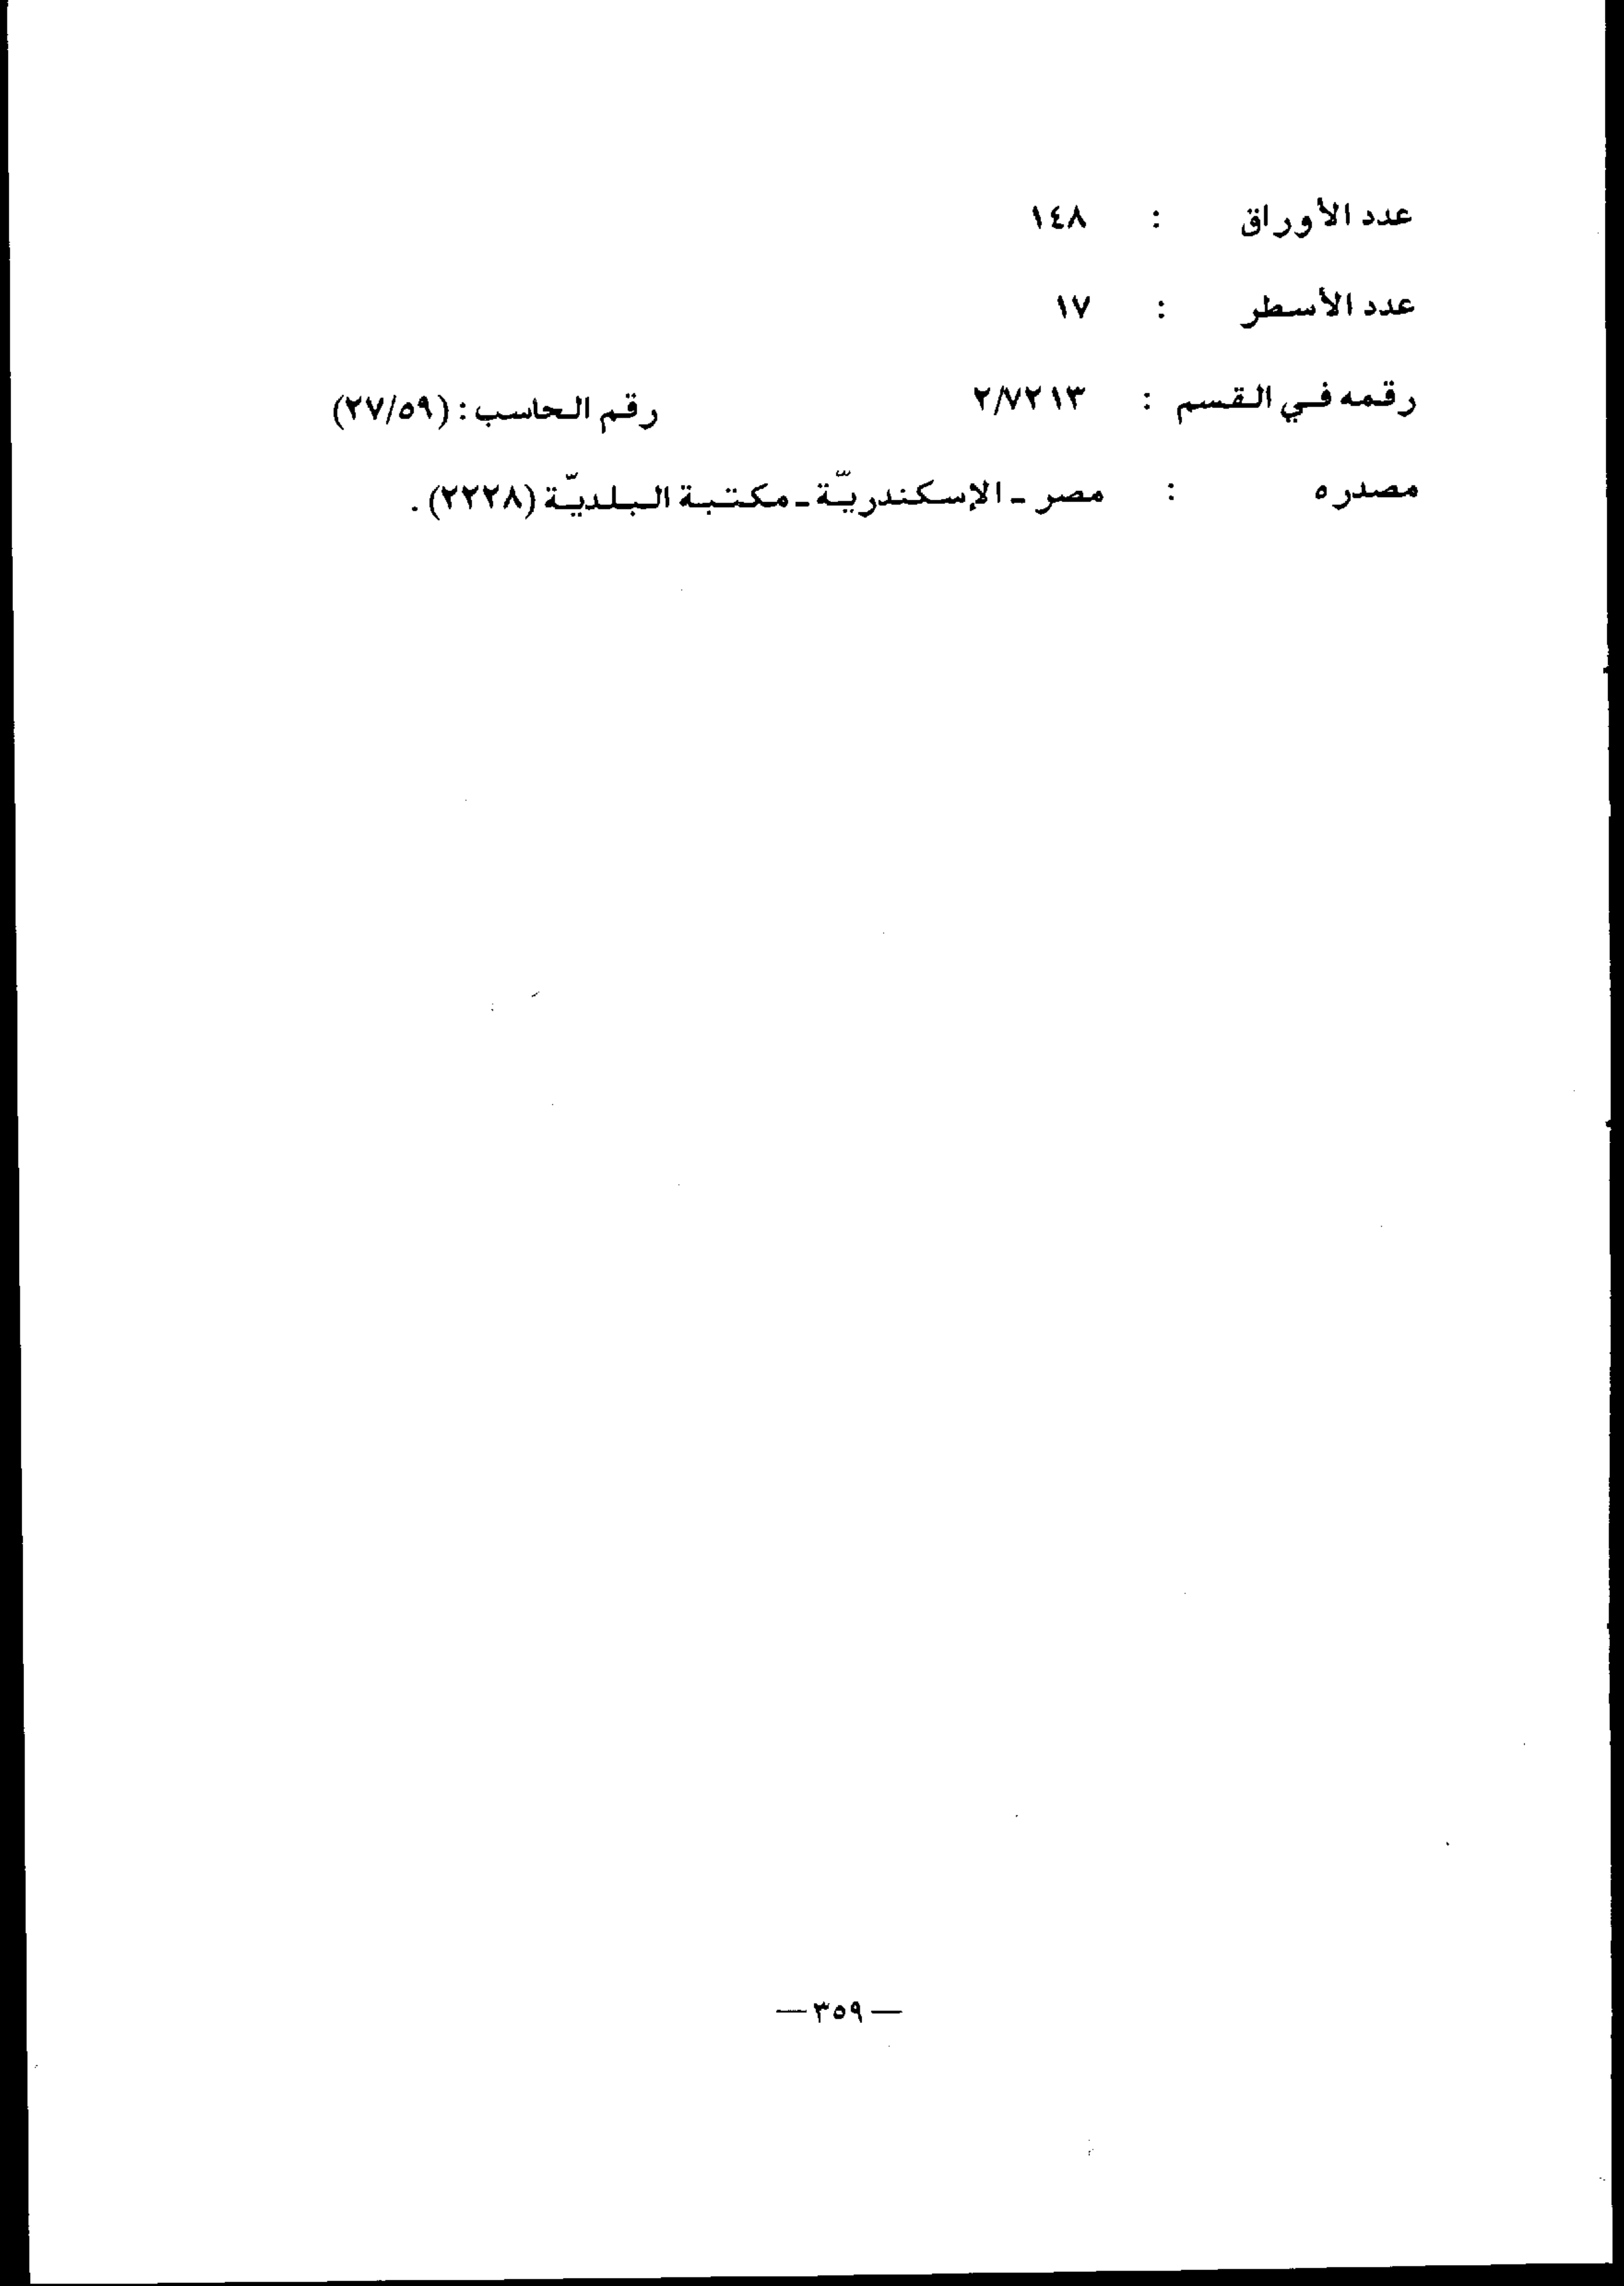 عدد الأوراق : ١٤٨
عدد الأسطر : ١٧
رقمه في القسم : ٢/٧٢١٣ رقم الحاسب : (٢٧/٥٩)
مصدره : مصر - الإسكندريّة - مكتبة البلديّة (٢٢٢٨) .
— ٣٥٩ —